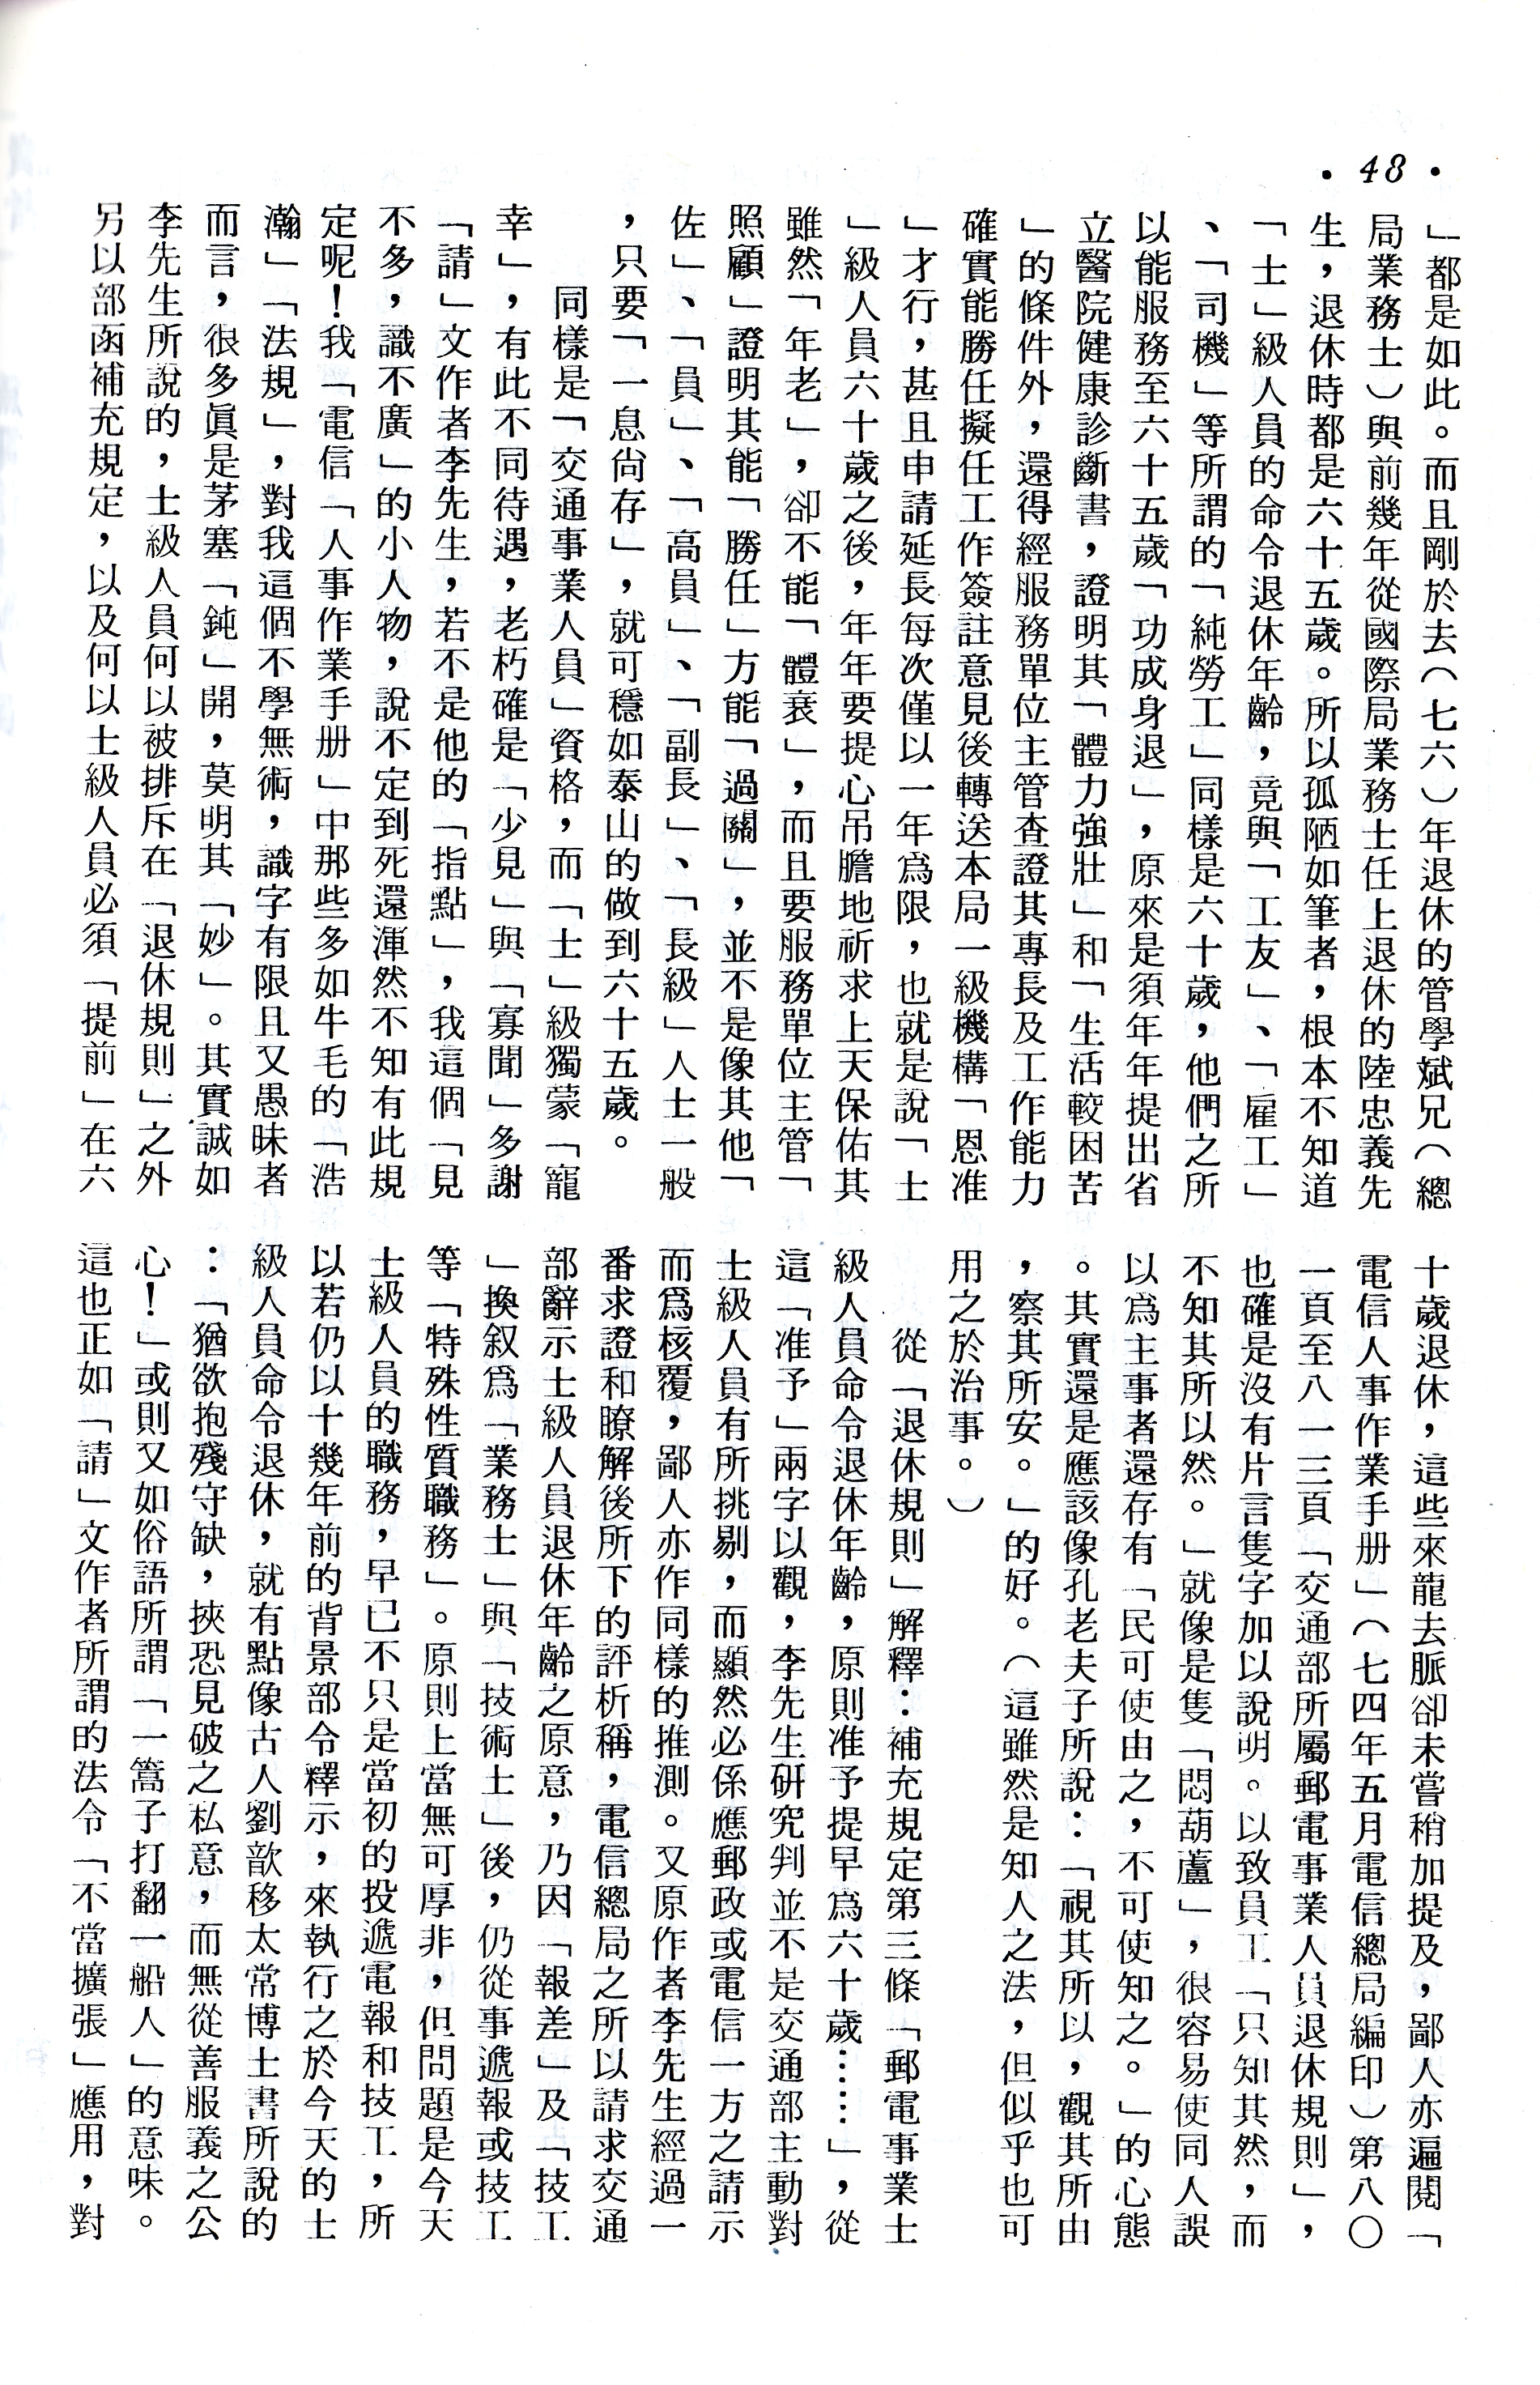 • 48 •
」都是如此。而且剛於去（七六）年退休的管學斌兄（總
局業務士）與前幾年從國際局業務士任上退休的陸忠義先
生，退休時都是六十五歲。所以孤陋如筆者，根本不知道
「士」級人員的命令退休年齡，竟與「工友」、「雇工」
、「司機」等所謂的「純勞工」同樣是六十歲，他們之所
以能服務至六十五歲「功成身退」，原來是須年年提出省
立醫院健康診斷書，證明其「體力強壯」和「生活較困苦
」的條件外，還得經服務單位主管查證其專長及工作能力
確實能勝任擬任工作簽註意見後轉送本局一級機構「恩准
」才行，甚且申請延長每次僅以一年爲限，也就是說「士
」級人員六十歲之後，年年要提心吊膽地祈求上天保佑其
雖然「年老」，卻不能「體衰」，而且要服務單位主管「
照顧」證明其能「勝任」方能「過關」，並不是像其他「
佐」、「員」、「高員」、「副長」、「長級」人士一般
，只要「一息尙存」，就可穩如泰山的做到六十五歲。
同樣是「交通事業人員」資格，而「士」級獨蒙「寵
幸」，有此不同待遇，老朽確是「少見」與「寡聞」多謝
「請」文作者李先生，若不是他的「指點」，我這個「見
不多，識不廣」的小人物，說不定到死還渾然不知有此規
定呢！我「電信「人事作業手册」中那些多如牛毛的「浩
瀚」「法規」，對我這個不學無術，識字有限且又愚昧者
而言，很多眞是茅塞「鈍」開，莫明其「妙」。其實誠如
李先生所說的，士級人員何以被排斥在「退休規則」之外
另以部函補充規定，以及何以士級人員必須「提前」在六
十歲退休，這些來龍去脈卻未嘗稍加提及，鄙人亦遍閱「
電信人事作業手册」（七四年五月電信總局編印）第八〇
一頁至八一三頁「交通部所屬郵電事業人員退休規則」，
也確是沒有片言隻字加以說明。以致員工「只知其然，而
不知其所以然。」就像是隻「悶葫蘆」，很容易使同人誤
以爲主事者還存有「民可使由之，不可使知之。」的心態
。其實還是應該像孔老夫子所說：「視其所以，觀其所由
，察其所安。」的好。（這雖然是知人之法，但似乎也可
用之於治事。）
從「退休規則」解釋：補充規定第三條「郵電事業士
級人員命令退休年齡，原則准予提早爲六十歲……」，從
這「准予」兩字以觀，李先生研究判並不是交通部主動對
士級人員有所挑剔，而顯然必係應郵政或電信一方之請示
而爲核覆，鄙人亦作同樣的推測。又原作者李先生經過一
番求證和瞭解後所下的評析稱，電信總局之所以請求交通
部辭示士級人員退休年齡之原意，乃因「報差」及「技工
」換叙爲「業務士」與「技術士」後，仍從事遞報或技工
等「特殊性質職務」。原則上當無可厚非，但問題是今天
士級人員的職務，早已不只是當初的投遞電報和技工，所
以若仍以十幾年前的背景部令釋示，來執行之於今天的士
級人員命令退休，就有點像古人劉歆移太常博士書所說的
：「猶欲抱殘守缺，挾恐見破之私意，而無從善服義之公
心！」或則又如俗語所謂「一篙子打翻一船人」的意味。
這也正如「請」文作者所謂的法令「不當擴張」應用，對